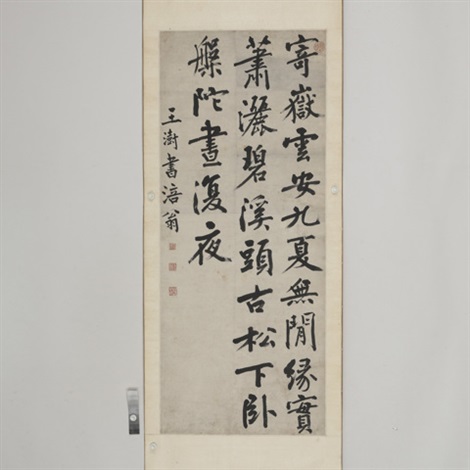 寄嶽雲安九夏無閒緣實
蕭灑碧溪頭古松下臥
槃陀晝復夜
王澍書涪翁